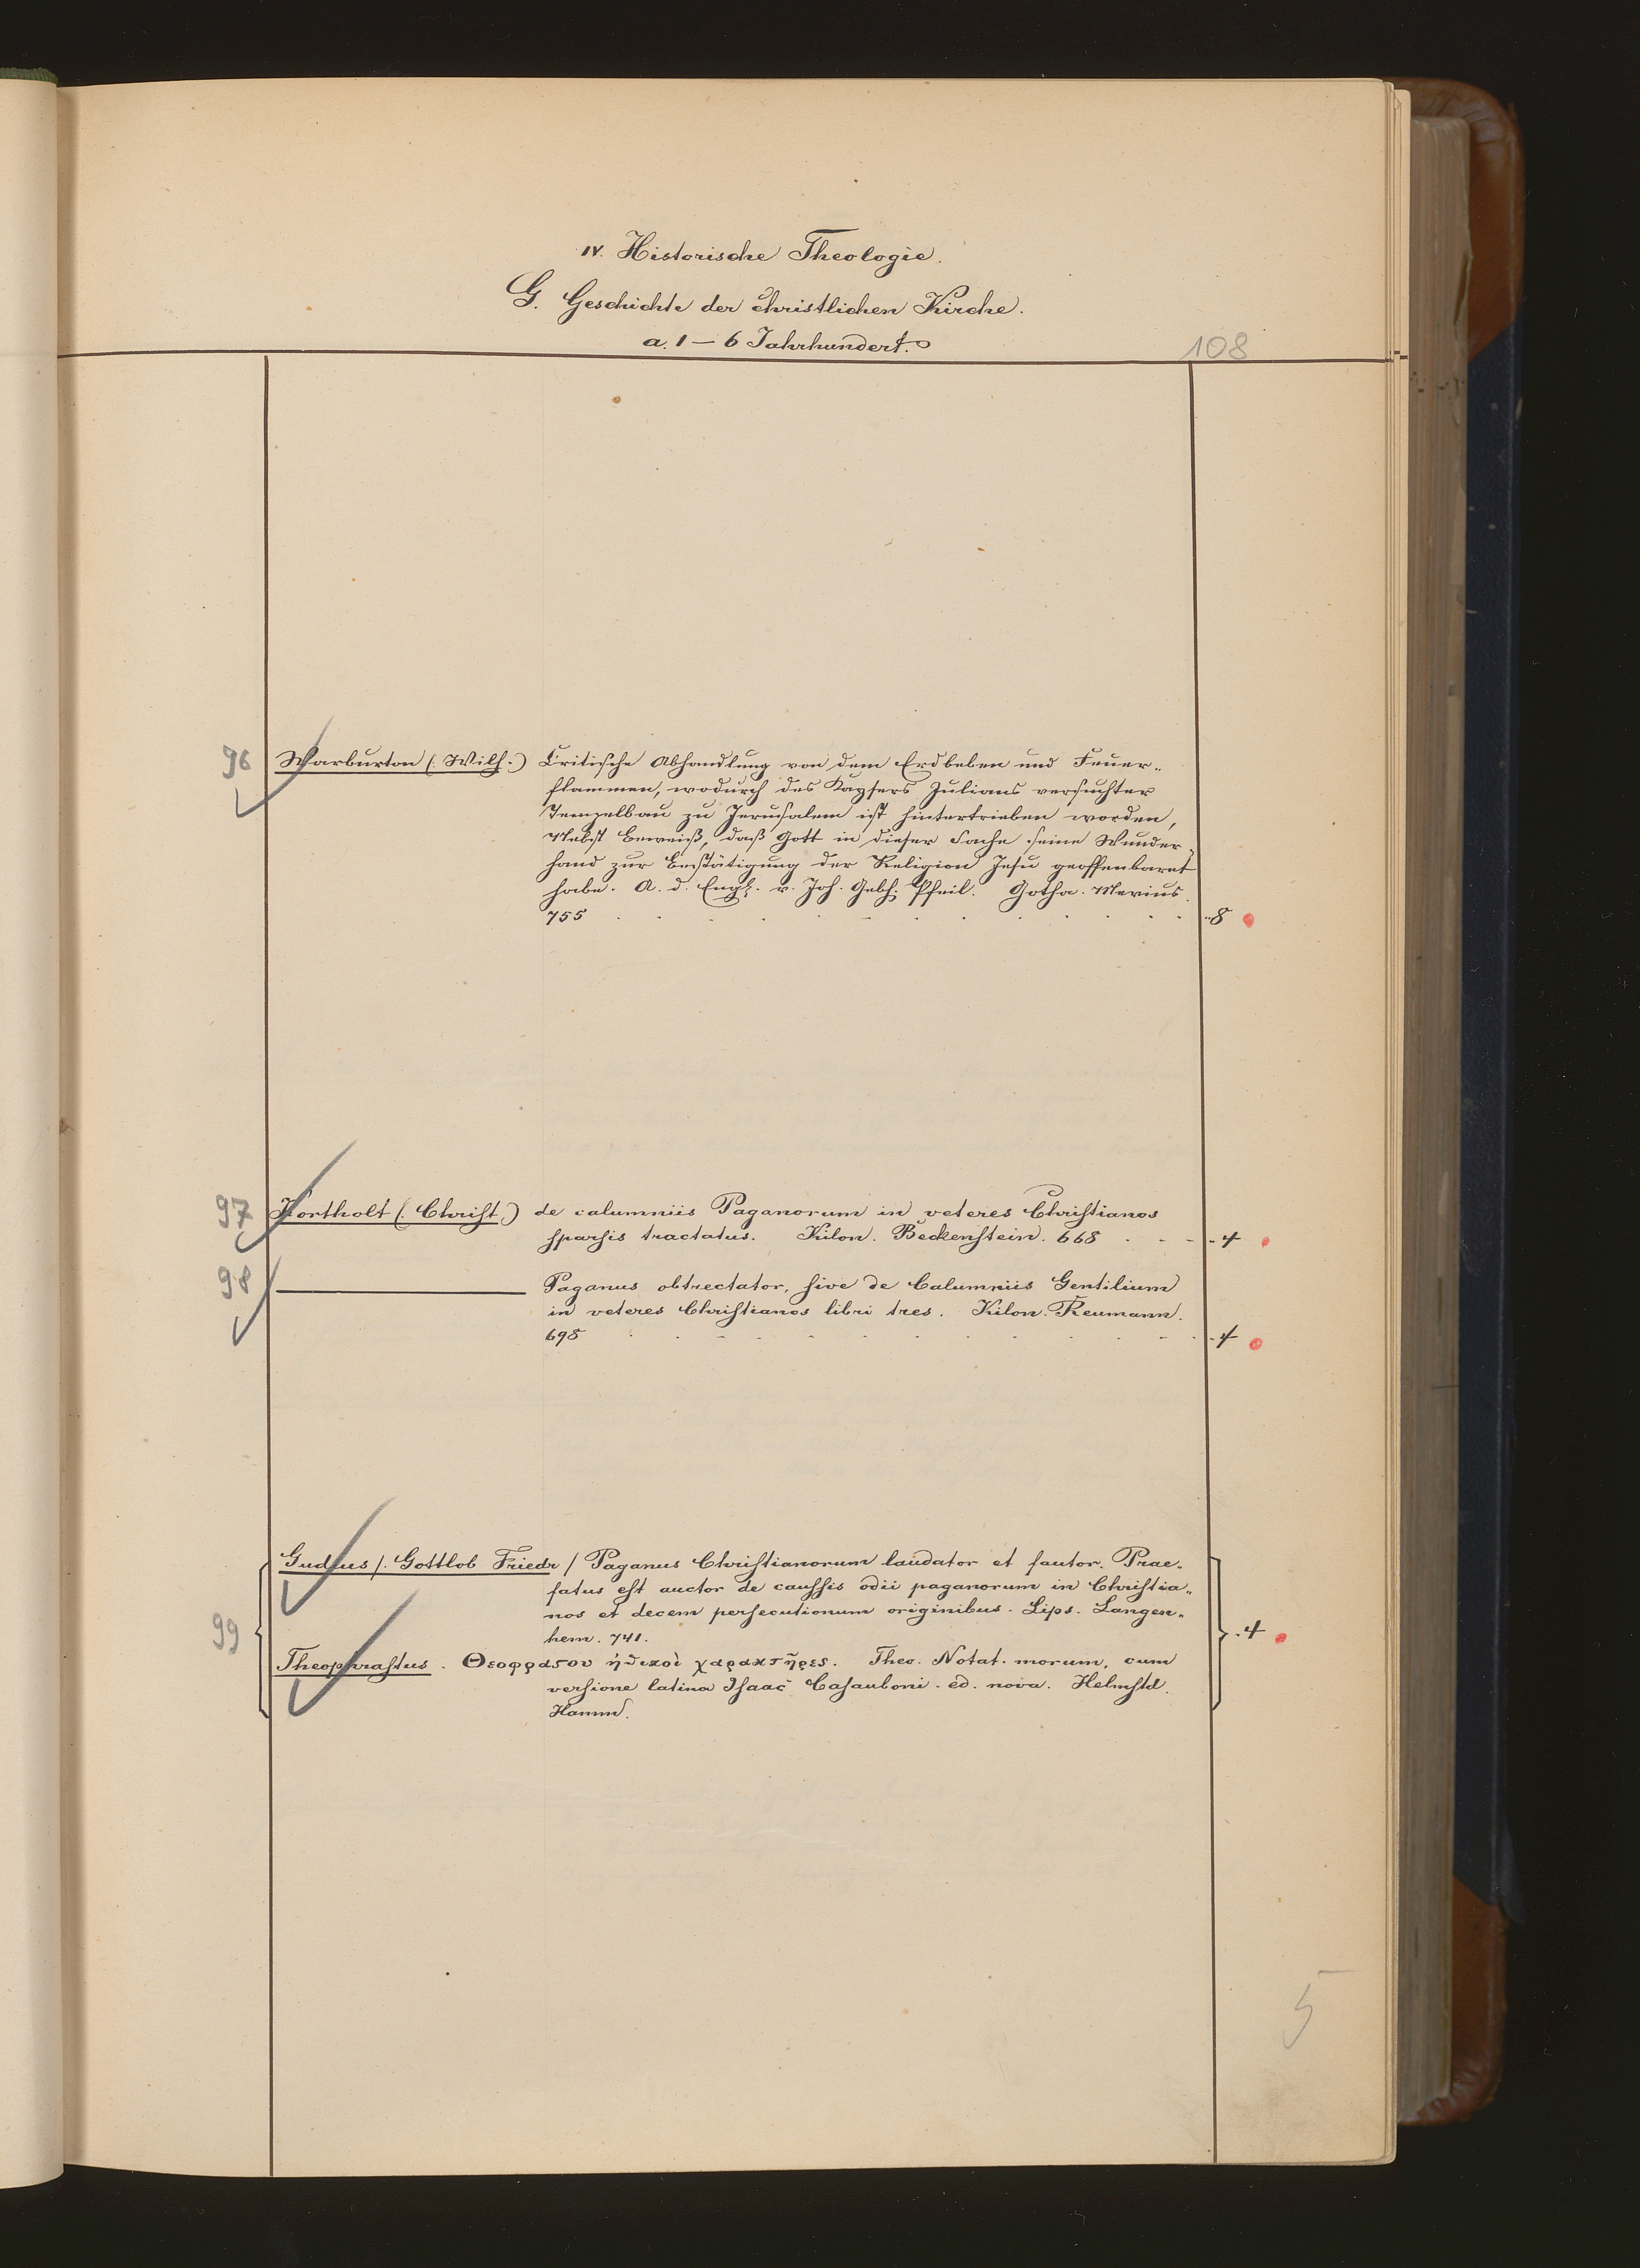 IV. Historische Theologie.
G. Geschichte der christlichen Kirche.
a. 1 — 6 Jahrhundert.
108
96 Warburton (: Wilh :) Critische Abhandlung von dem Erdbeben und Feuer„
flammen, wodurch des Kaysers Julians versuchter
Tempelbau zu Jerusalem ist hintertrieben worden,
Nebst Beweiß, daß Gott in dieser Sache seine Wunder„
hand zur Bestätigung der Religion Jesu geoffenbaret
habe. A. d. Engl. v. Joh. Gebh. Pfeil. Gotha. Mevius.
755 . . . . . . . . . . . 8
97 Kortholt (: Christ :) de calumniis Paganorum in veteres Christianos
sparsis tractatus. Kilon. Beckenstein. 668 . - - - 4
98 ——— Paganus obtrectator, sive de Calumniis Gentilium
in veteres Christianos libri tres. Kilon. Reumann.
698 . . . . . . . . . . . 4
Gudius /: Gottlob Friedr / Paganus Christianorum laudator et fautor. Prae„
fatus est auctor de caussis odii paganorum in Christia„
nos et decem persecutionum originibus. Lips. Langen„
99 hem. 741. . 4
Theophrastus. Θεοφραςου ἠθικοὶ χαρακτῆρες. Theo. Notat. morum, cum
versione latina Isaac Casauboni. ed. nova. Helmstd.
Hamm.
5